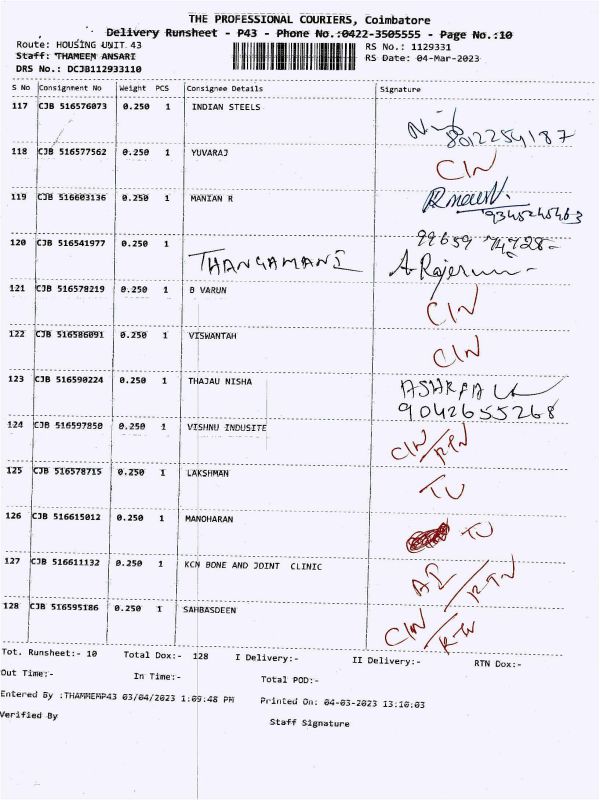 THE PROFESSIONAL COURIERS, Coimbatore
Delivery Runsheet - P43 - Phone No.:0422-3505555 - Page No.:10
Route: HOUSING UNIT 43 RS No.: 1129331
Staff: THAMEEM ANSARI RS Date: 04-Mar-2023
DRS No.: DCJB112933110
S No Consignment No Weight PCS Consignee Details Signature
117 CJB 516576073 0.250 1 INDIAN STEELS
8012254187
118 CJB 516577562 0.250 1 YUVARAJ CIN
119 CJB 516603136 0.250 1 MANIAN R
9345245463
120 CJB 516541977 0.250 1 THANGAMANI
121 CJB 516578219 0.250 1 B VARUN CIN
122 CJB 516586091 0.250 1 VISWANTAH CIN
123 CJB 516590224 0.250 1 THAJAU NISHA
9042655268
124 CJB 516597850 0.250 1 VISHNU INDUSITE CIN/RTN
125 CJB 516578715 0.250 1 LAKSHMAN TU
126 CJB 516615012 0.250 1 MANOHARAN TU
127 CJB 516611132 0.250 1 KCN BONE AND JOINT CLINIC /RTN
128 CJB 516595186 0.250 1 SAHBASDEEN CIN/RTN
Tot. Runsheet:- 10 Total Dox:- 128 I Delivery:- II Delivery:- RTN Dox:-
Out Time:- In Time:- Total POD:-
Entered By :THAMMEMP43 03/04/2023 1:09:48 PM Printed On: 04-03-2023 13:10:03
Verified By Staff Signature